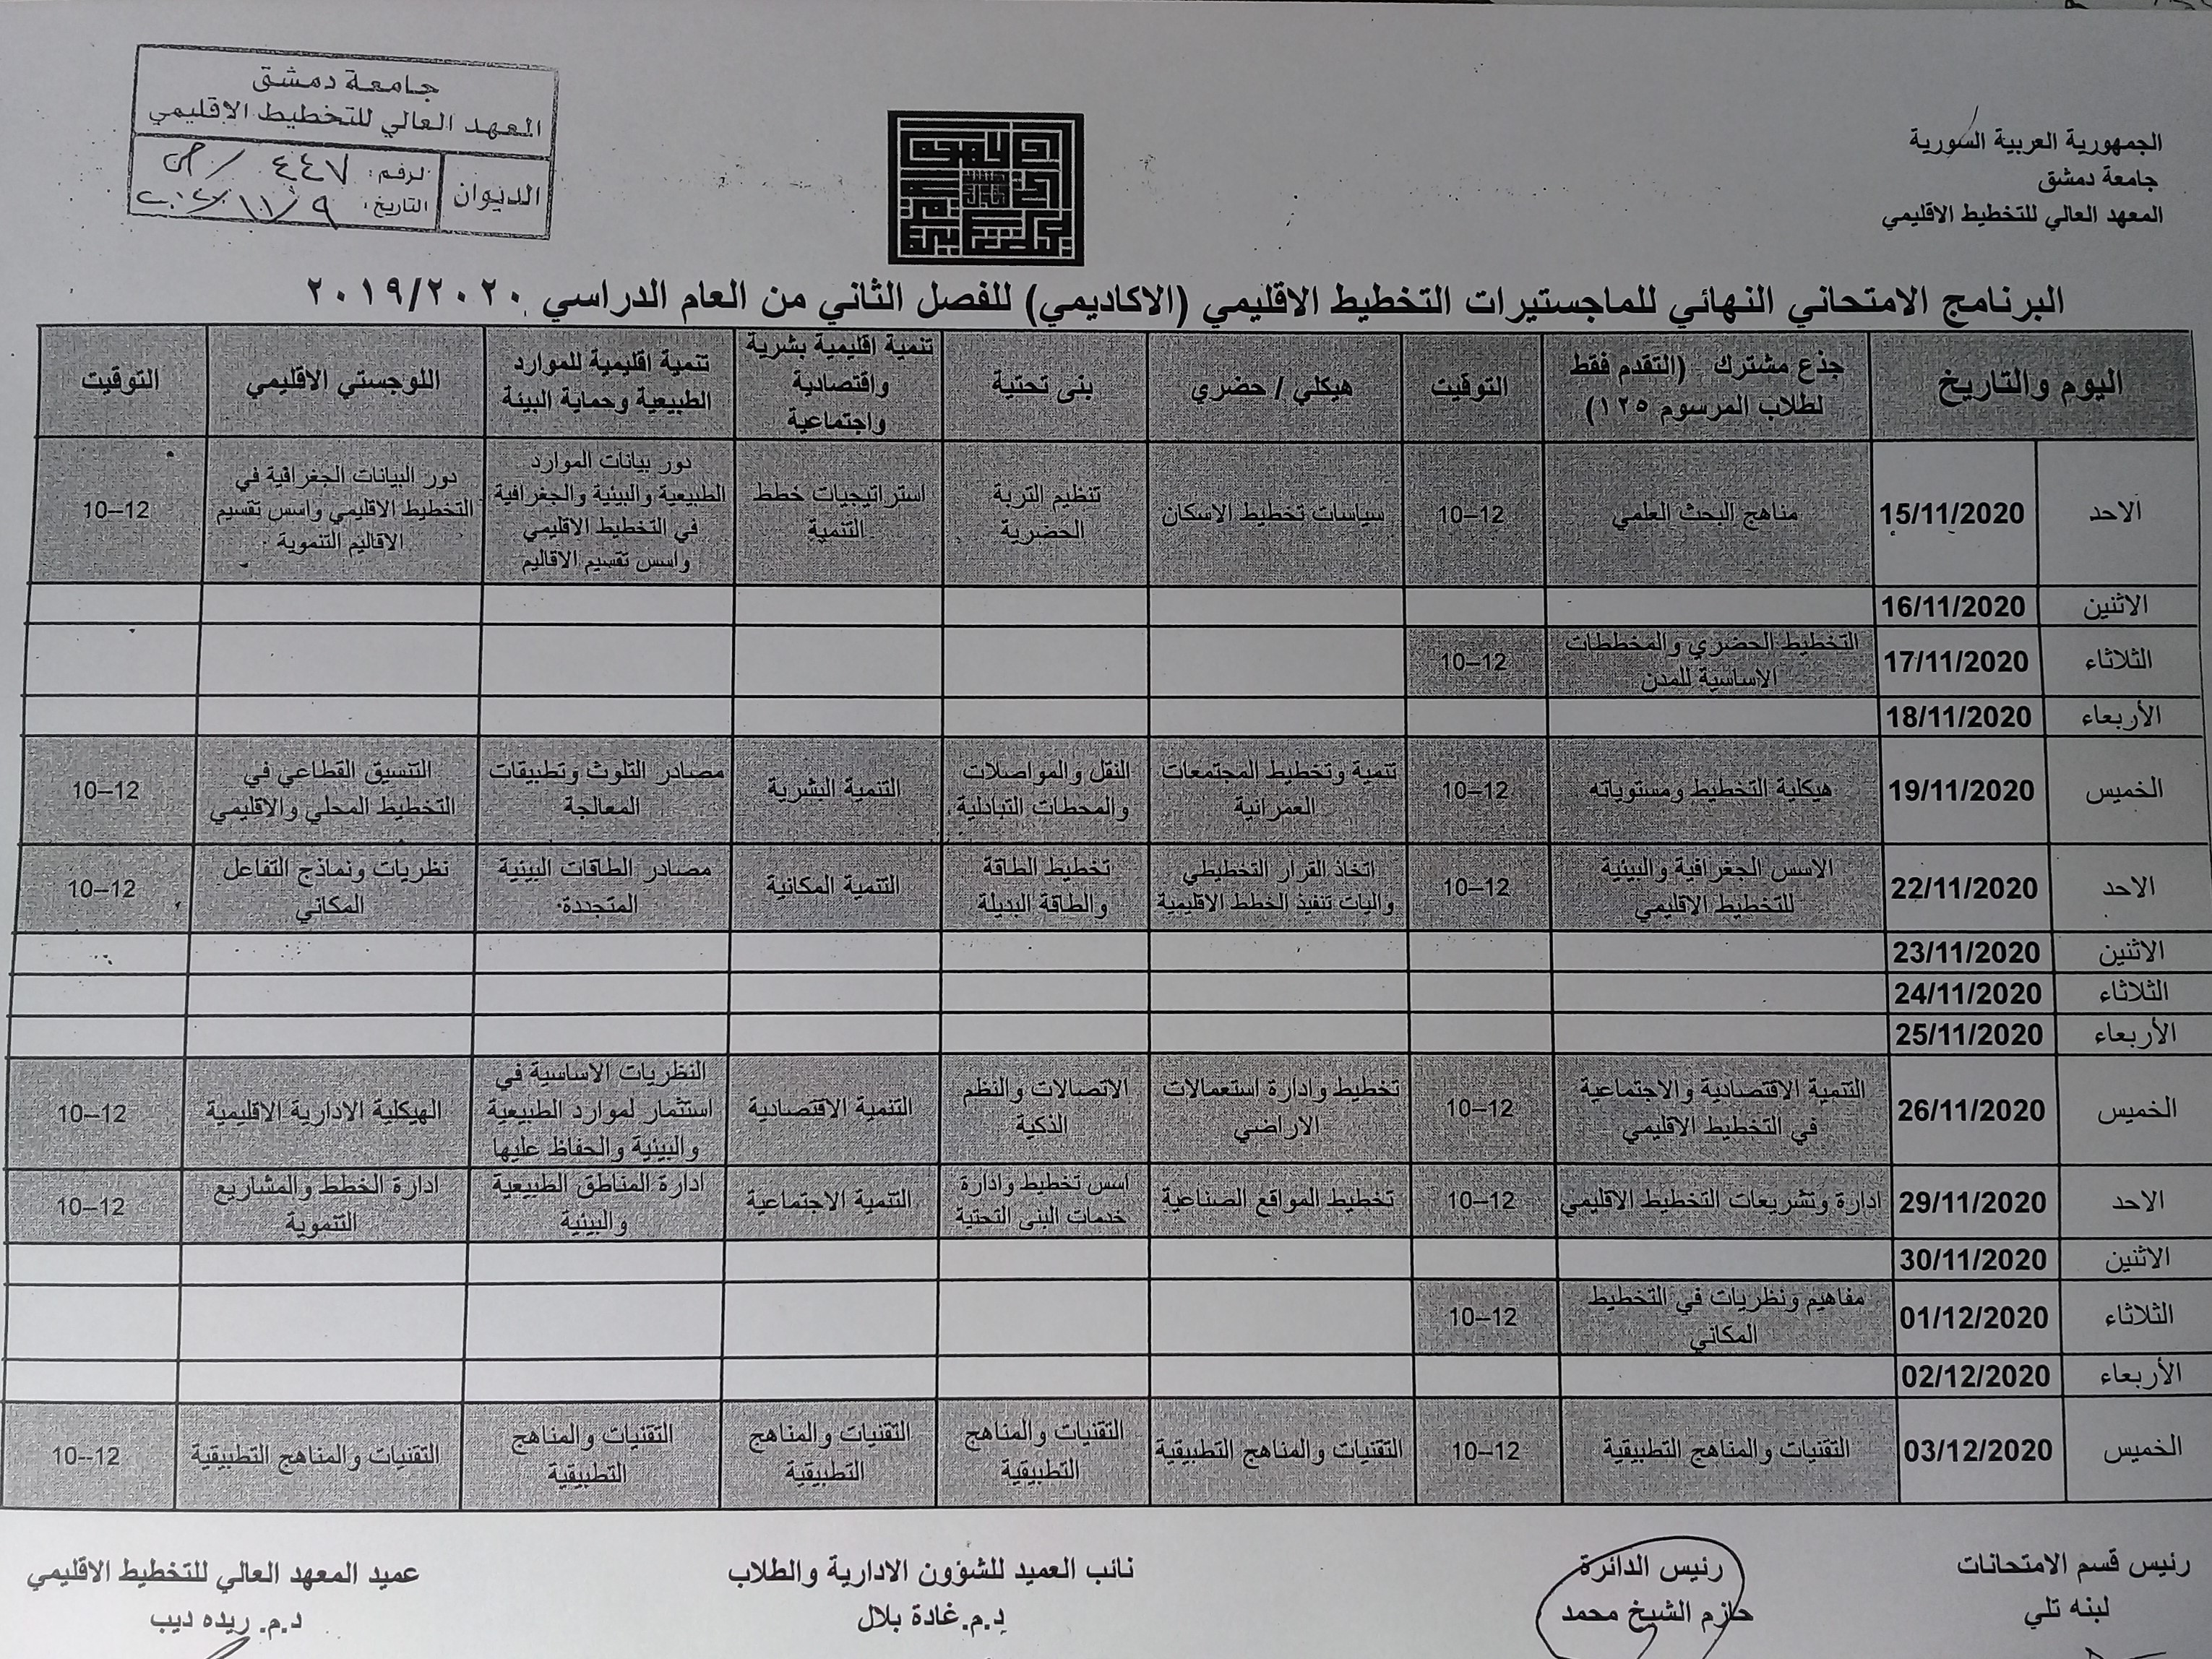 الجمهورية العربية السورية
جامعة دمشق
المعهد العالي للتخطيط الاقليمي
جامعة دمشق
المعهد العالي للتخطيط الاقليمي
الديوان
الرقم: ٤٤٧ / ص
التاريخ: ٩ / ١١ / ٢٠٢٠
البرنامج الامتحاني النهائي للماجستيرات التخطيط الاقليمي (الاكاديمي) للفصل الثاني من العام الدراسي ٢٠١٩/٢٠٢٠
اليوم والتاريخ
جذع مشترك (التقدم فقط
لطلاب المرسوم ١٢٥)
التوقيت
هيكلي / حضري
بنى تحتية
تنمية اقليمية بشرية
واقتصادية
واجتماعية
تنمية اقليمية للموارد
الطبيعية وحماية البيئة
اللوجستي الاقليمي
التوقيت
الاحد
15/11/2020
مناهج البحث العلمي
10–12
سياسات تخطيط الاسكان
تنظيم التربة
الحضرية
استراتيجيات خطط
التنمية
دور بيانات الموارد
الطبيعية والبيئية والجغرافية
في التخطيط الاقليمي
واسس تقسيم الاقاليم
دور البيانات الجغرافية في
التخطيط الاقليمي واسس تقسيم
الاقاليم التنموية
10–12
الاثنين
16/11/2020
الثلاثاء
17/11/2020
التخطيط الحضري والمخططات
الاساسية للمدن
10–12
الأربعاء
18/11/2020
الخميس
19/11/2020
هيكلية التخطيط ومستوياته
10–12
تنمية وتخطيط المجتمعات
العمرانية
النقل والمواصلات
والمحطات التبادلية
التنمية البشرية
مصادر التلوث وتطبيقات
المعالجة
التنسيق القطاعي في
التخطيط المحلي والاقليمي
10–12
الاحد
22/11/2020
الاسس الجغرافية والبيئية
للتخطيط الاقليمي
10–12
اتخاذ القرار التخطيطي
واليات تنفيذ الخطط الاقليمية
تخطيط الطاقة
والطاقة البديلة
التنمية المكانية
مصادر الطاقات البيئية
المتجددة
نظريات ونماذج التفاعل
المكاني
10–12
الاثنين
23/11/2020
الثلاثاء
24/11/2020
الأربعاء
25/11/2020
الخميس
26/11/2020
التنمية الاقتصادية والاجتماعية
في التخطيط الاقليمي
10–12
تخطيط وادارة استعمالات
الاراضي
الاتصالات والنظم
الذكية
التنمية الاقتصادية
النظريات الاساسية في
استثمار لموارد الطبيعية
والبيئية والحفاظ عليها
الهيكلية الادارية الاقليمية
10–12
الاحد
29/11/2020
ادارة وتشريعات التخطيط الاقليمي
10–12
تخطيط المواقع الصناعية
اسس تخطيط وادارة
خدمات البنى التحتية
التنمية الاجتماعية
ادارة المناطق الطبيعية
والبيئية
ادارة الخطط والمشاريع
التنموية
10–12
الاثنين
30/11/2020
الثلاثاء
01/12/2020
مفاهيم ونظريات في التخطيط
المكاني
10–12
الأربعاء
02/12/2020
الخميس
03/12/2020
التقنيات والمناهج التطبيقية
10–12
التقنيات والمناهج التطبيقية
التقنيات والمناهج
التطبيقية
التقنيات والمناهج
التطبيقية
التقنيات والمناهج
التطبيقية
التقنيات والمناهج التطبيقية
10--12
رئيس قسم الامتحانات
لبنه تلي
رئيس الدائرة
حازم الشيخ محمد
نائب العميد للشؤون الادارية والطلاب
د.م.غادة بلال
عميد المعهد العالي للتخطيط الاقليمي
د.م. ريده ديب